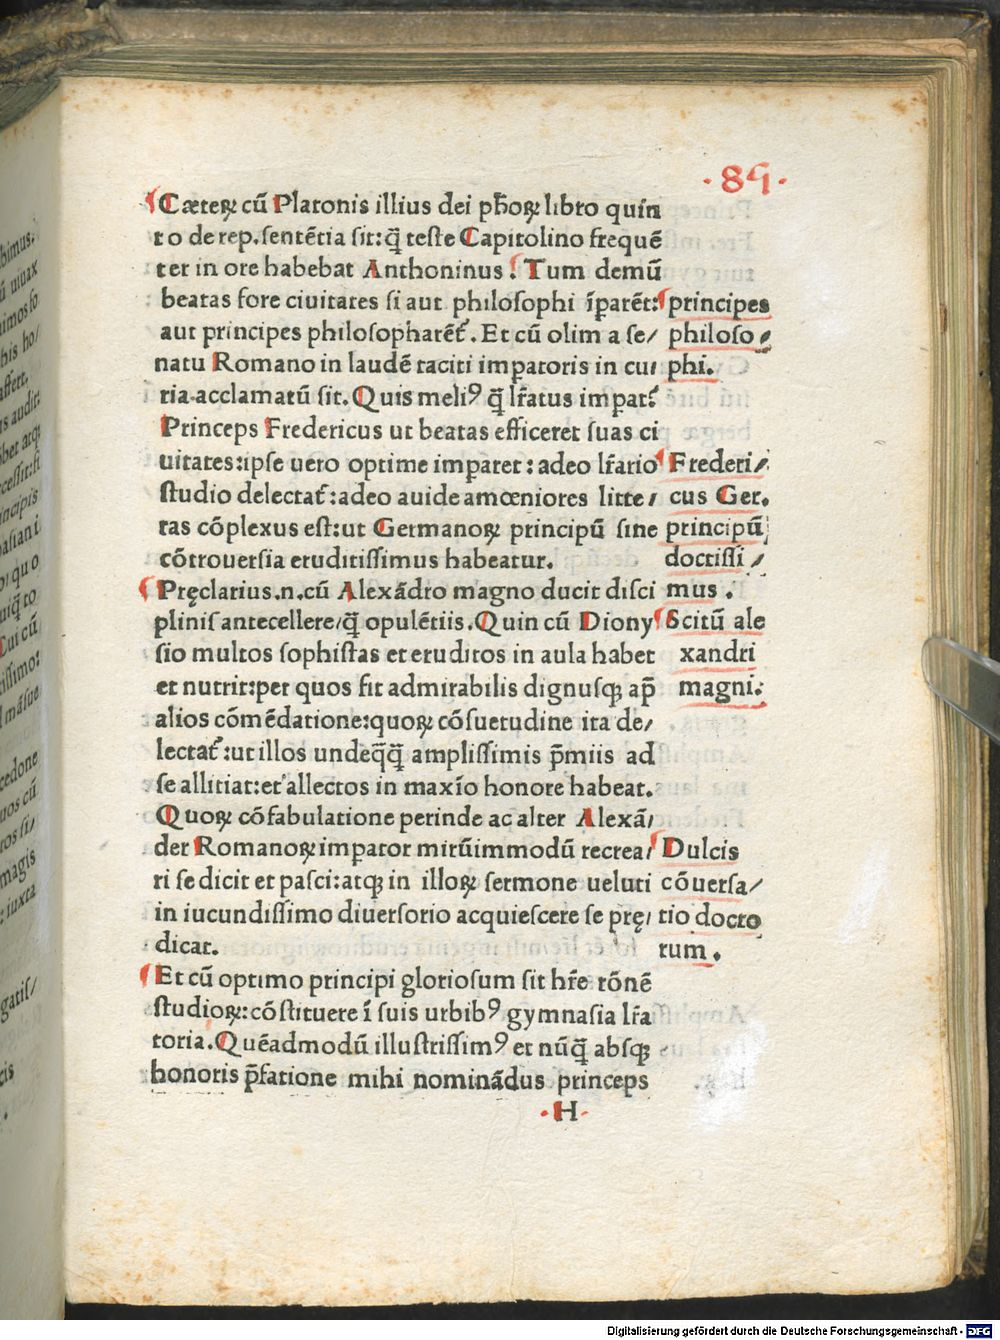 ·85·
Cæteꝝ cū Platonis illius dei ph̄oꝝ libro quin
to de rep. sentētia sit: q̄ teste Capitolino frequē
ter in ore habebat Anthoninus: Tum demū
beatas fore ciuitates si aut philosophi īparēt:
aut principes philosopharēt᷑. Et cū olim a se/
natu Romano in laudē taciti imperatoris in cu/
ria acclamatū sit. Quis meliꝰ q̄ lr̄atus impat᷑
Princeps Fredericus ut beatas efficeret suas ci
uitates: ipse uero optime imparet: adeo lr̄ario
studio delectat᷑: adeo auide amœniores litte/
ras cōplexus est: ut Germanoꝝ principū sine
cōtrouersia eruditissimus habeatur.
Pręclarius .n. cū Alexādro magno ducit disci
plinis antecellere/ q̄ opulētiis. Quin cū Diony
sio multos sophistas et eruditos in aula habet
et nutrit: per quos fit admirabilis dignusqꝫ ap̄
alios cōmēdatione: quoꝝ cōsuetudine ita de/
lectat᷑: ut illos undeq̄q̄ amplissimis p̄miis ad
se allitiat: et allectos in maxīo honore habeat.
Quoꝝ cōfabulatione perinde ac alter Alexā/
der Romanoꝝ impator mirūimmodū recrea/
ri se dicit et pasci: atqꝫ in illoꝝ sermone ueluti
in iucundissimo diuersorio acquiescere se prę/
dicat.
Et cū optimo principi gloriosum sit hr̄e rōnē
studioꝝ: cōstituere ī suis urbibꝰ gymnasia lr̄a
toria. Quēadmodū illustrissimꝰ et nūq̄ absqꝫ
honoris p̄fatione mihi nominādus princeps
·H·
principes
philoso/
phi.
Frederi/
cus Ger.
principū
doctissi/
mus.
Scitū ale
xandri
magni.
Dulcis
cōuersa/
tio docto
rum.
Digitalisierung gefördert durch die Deutsche Forschungsgemeinschaft - DFG